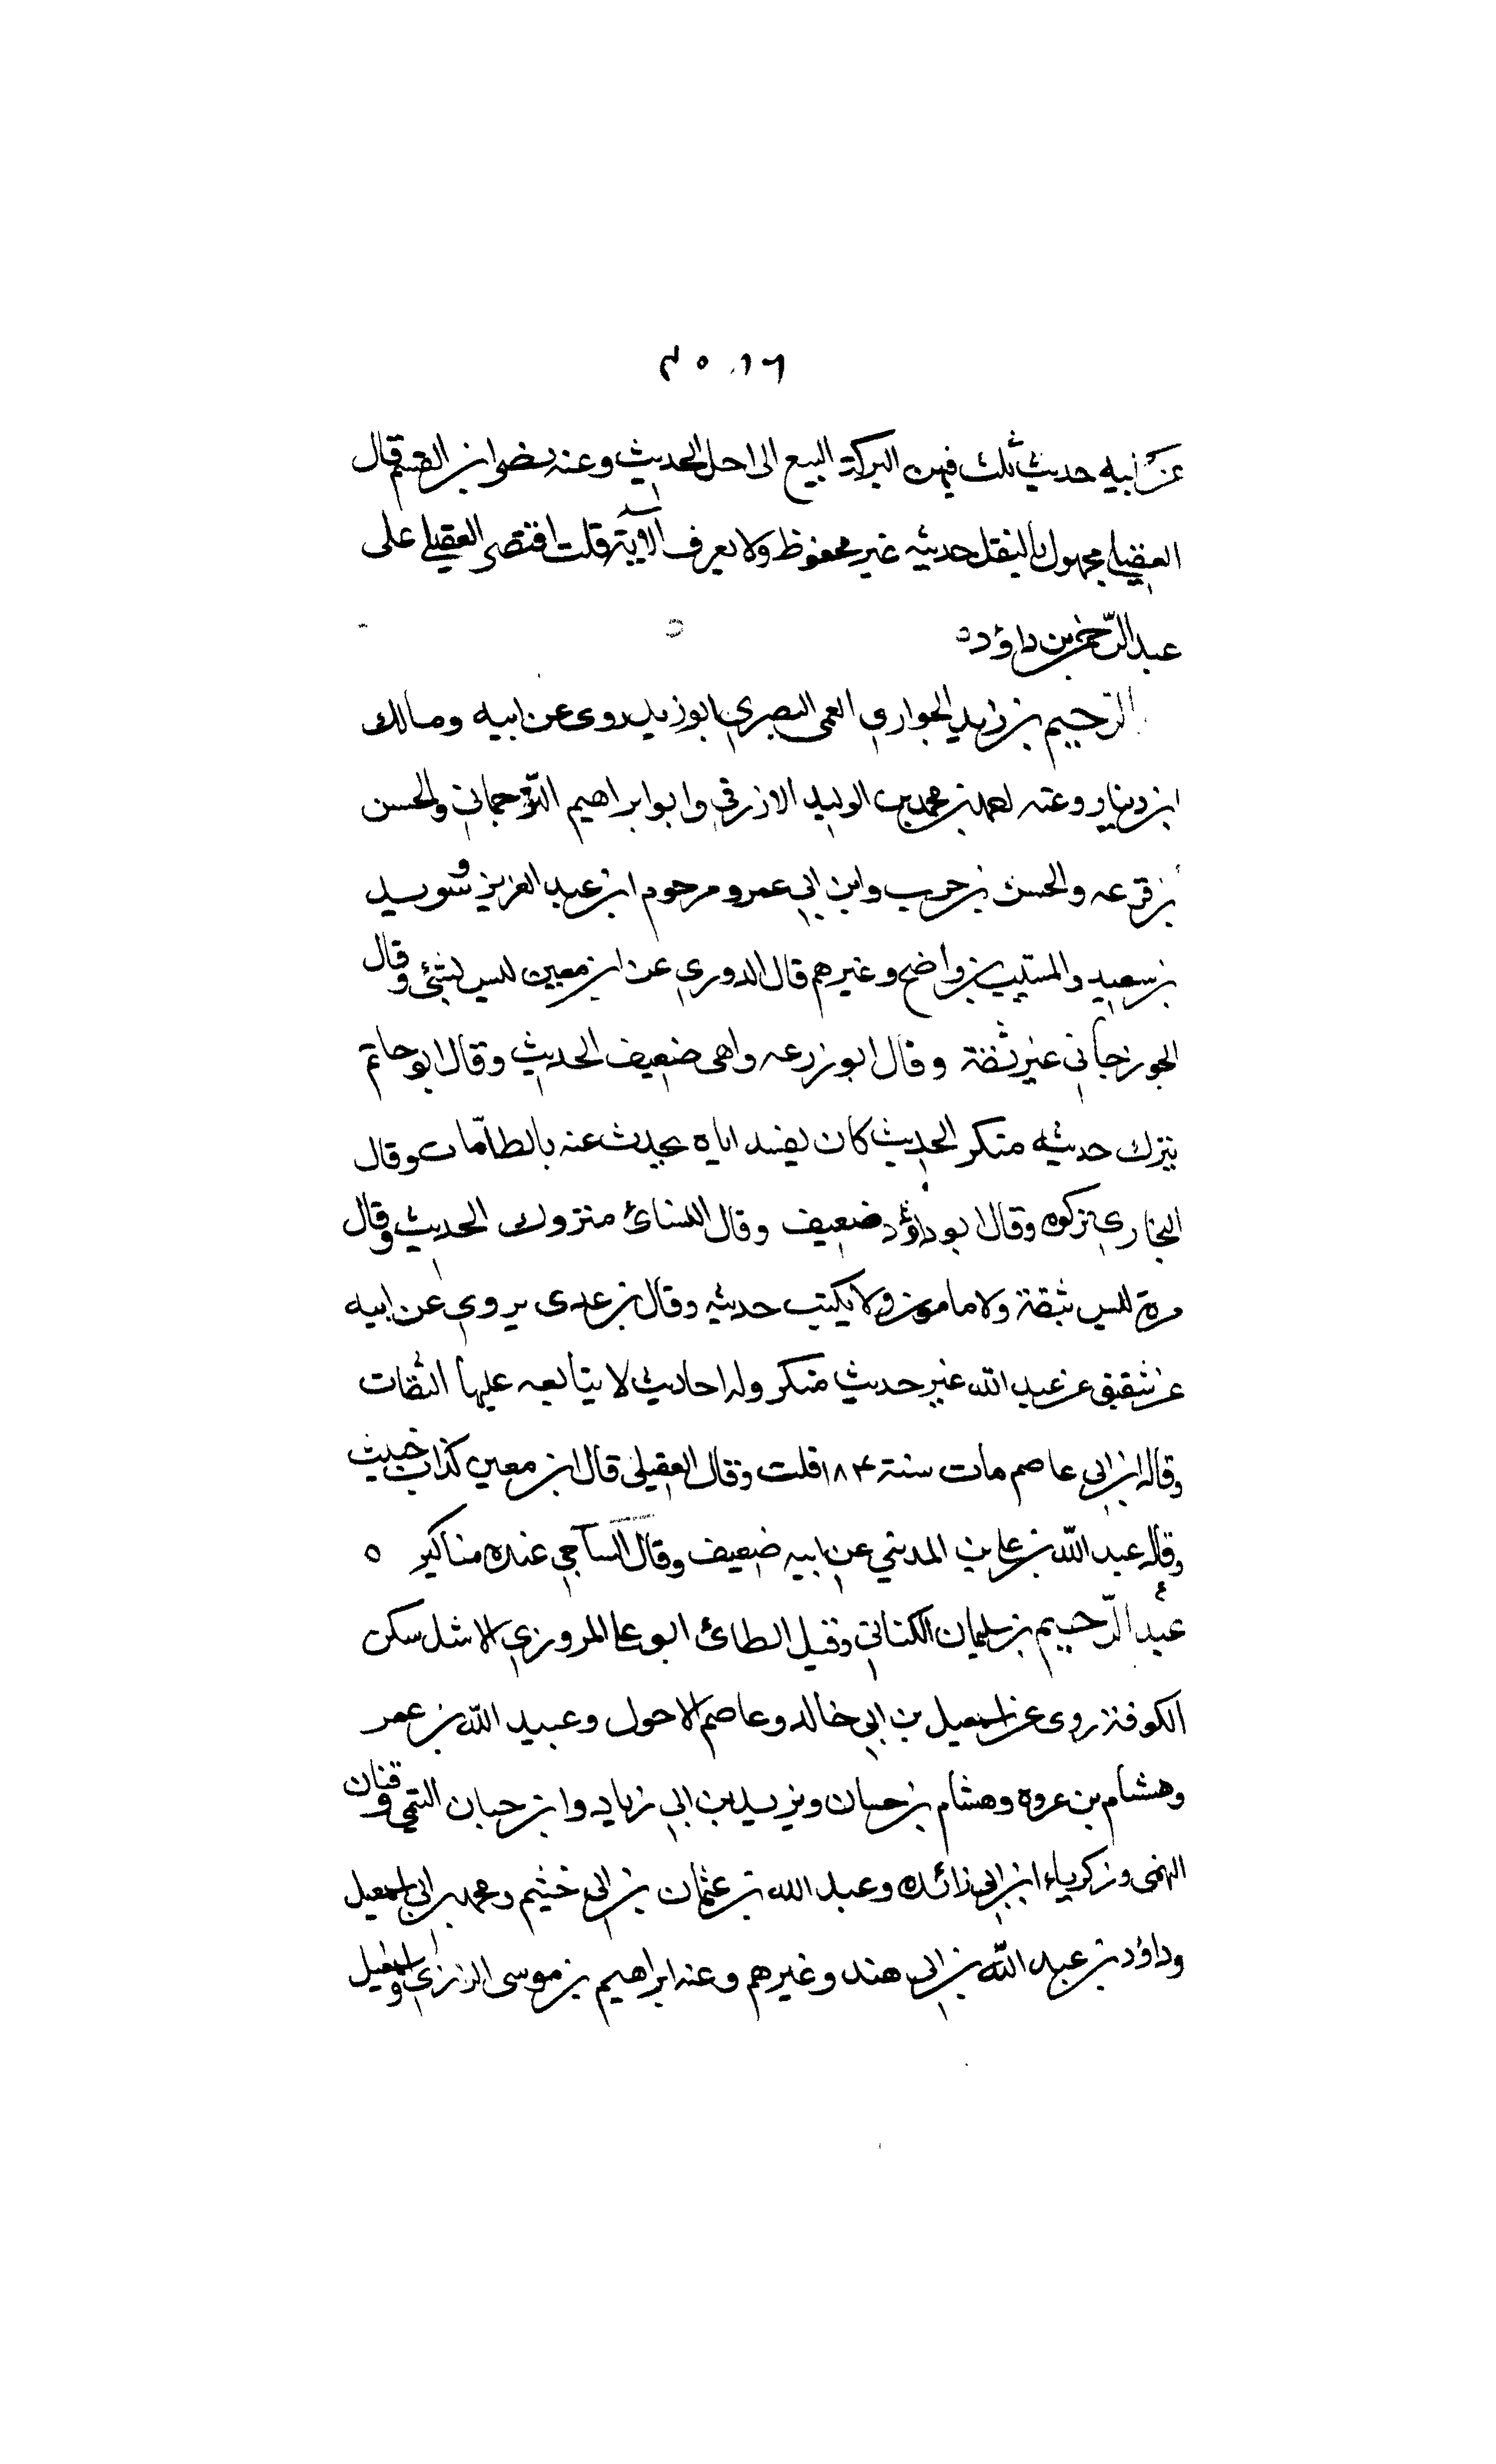 عن ابيه حديث ثلث فيهن البركة البيع الى اجل الحديث وعنه نصر ابن القسم قال
العقيلي مجهول بالنقل حديثه غير محفوظ ولا يعرف الا به قلت اقتصر العقيلي على
عبد الرّحمن بن داؤد ه
الرّحيم بن زيد الحواري العمى البصري ابو زيد روى عن ابيه ومالك
ابن دينار وعنه احمد بن محمد بن الوليد الازرقي وابو ابراهيم الترجماني والحسن
بن قرعه والحسن بن حرب وابن ابي عمرو مرحوم ابن عبد العزيز وسويد
بن سعيد والمسيب بن واضح وغيرهم قال الدوري عن ابن معين ليس بشئ وقال
الجوزجاني غير ثقة وقال ابو زرعه واهى ضعيف الحديث وقال ابو حاتم
يترك حديثه منكر الحديث كان يفسد اباه يحدث عنه بالطامّات وقال
البخاري تركوه وقال ابو داؤد ضعيف وقال النسائ متروك الحديث وقال
مرة ليس بثقة ولا مامون ولا يكتب حديثه وقال بن عدى يروي عن ابيه
عن شقيق عن عبد الله غير حديث منكر وله احاديث لا يتابعه عليها الثقات
وقال ابن ابي عاصم مات سنة ۱۸۴ قلت وقال العقيلي قال ابن معين كذاب خبيث
وقال عبد الله بن علي بن المديني عن ابيه ضعيف وقال الساجي عنده مناكير ه
عبد الرّحيم بن سليمان الكناني وقيل الطائ ابو علي المروزي الاشل سكن
الكوفة روى عن اسمعيل بن ابي خالد وعاصم الاحول وعبيد الله بن عمر
وهشام بن عروة وهشام بن حسان ويزيد بن ابي زياد وابن حبان التيمي وقنان
النهمي وزكرياء ابن ابي زائده وعبد الله بن عثمان بن ابي خثيم ومحمد بن ابي اسمعيل
وداؤد بن عبد الله بن ابي هند وغيرهم وعنه ابراهيم بن موسى الرازي واسمعيل